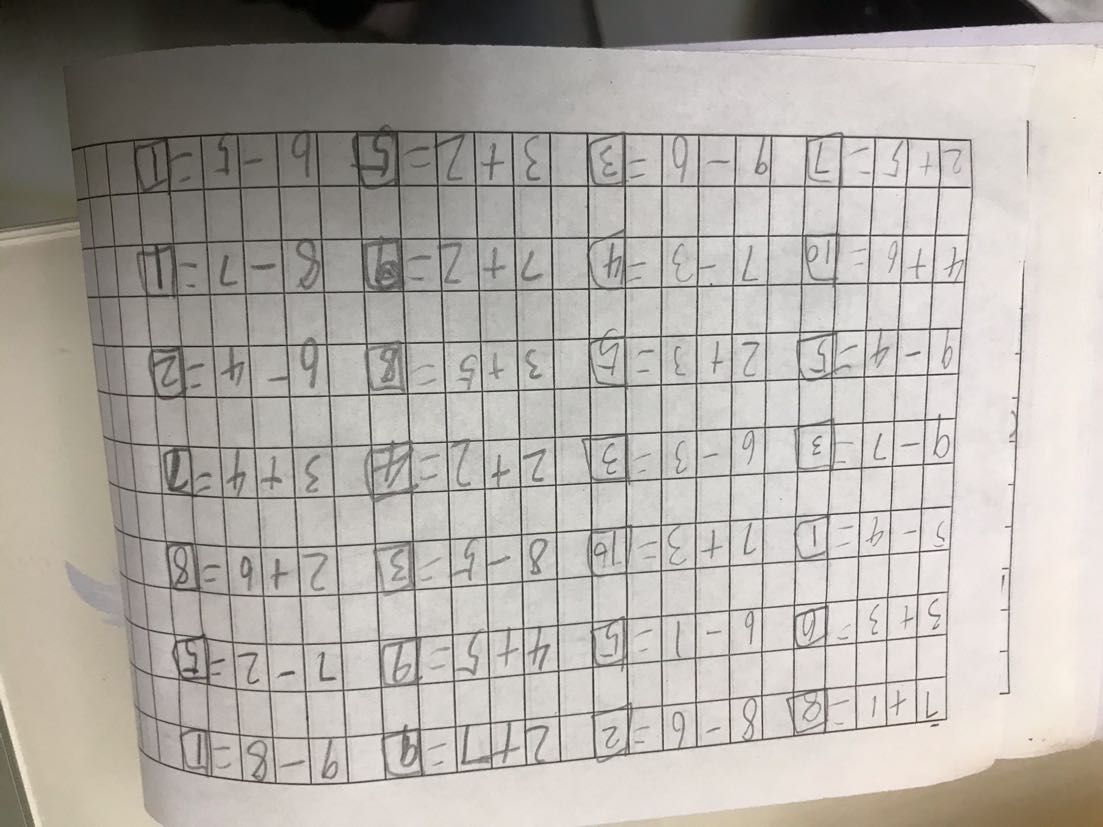 7+1=8 8-6=2 2+7=9 9-8=1
3+3=6 6-1=5 4+5=9 7-2=5
5-4=1 7+3=10 8-5=3 2+6=8
9-7=3 6-3=3 2+2=4 3+4=7
9-4=5 2+3=5 3+5=8 6-4=2
4+6=10 7-3=4 7+2=9 8-7=1
2+5=7 9-6=3 3+2=5 6-5=1